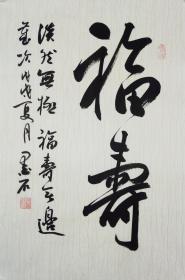 福壽
淡然無極福壽无邊
歲次戊戌夏月墨石